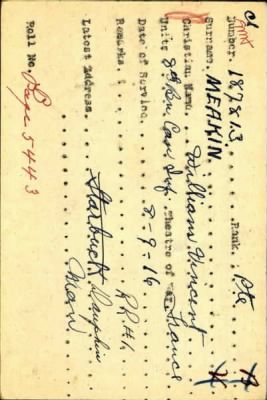 Number. 187813 Rank. Pte
Surname. MEAKIN
Christian Name William Vincent
Units 8th Bn Can Inf. Theatre of War France
Date of Service. 8-9-16
Remarks.
Latest Address. Starbuck Dauphin
Man.
Roll No. Page 5443